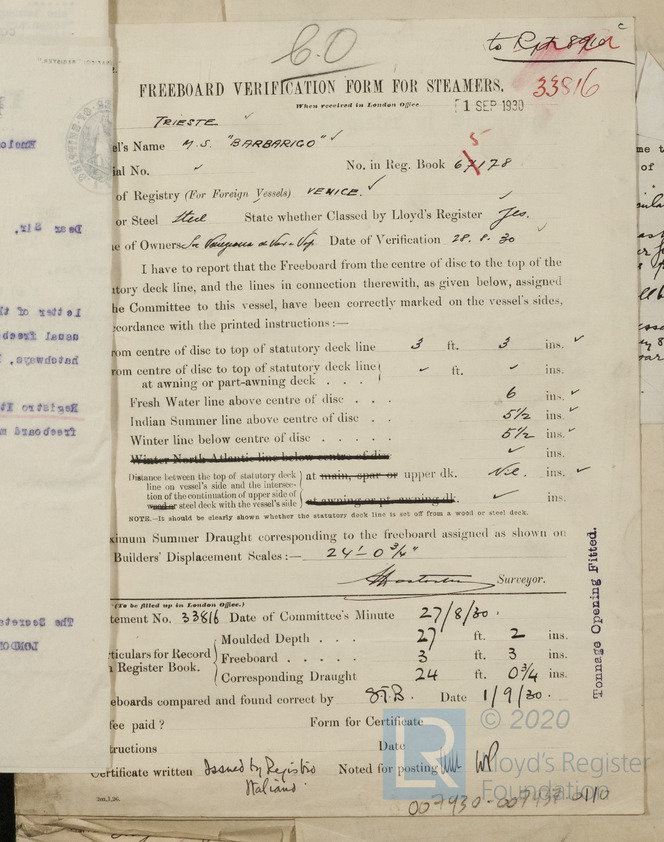 6.0
to Rpt 8910c
FREEBOARD VERIFICATION FORM FOR STEAMERS.
33816
When received in London Office
1 SEP 1930
TRIESTE
el's Name M.S. "BARBARIGO"
5
ial No. No. in Reg. Book 67178
of Registry (For Foreign Vessels) VENICE.
or Steel Steel State whether Classed by Lloyd's Register Yes.
e of Owners Date of Verification 28.8.30
I have to report that the Freeboard from the centre of disc to the top of the
tory deck line, and the lines in connection therewith, as given below, assigned
he Committee to this vessel, have been correctly marked on the vessel's sides,
ccordance with the printed instructions:—
rom centre of disc to top of statutory deck line 3 ft. 3 ins.
rom centre of disc to top of statutory deck line ft. ins.
at awning or part-awning deck . . .
Fresh Water line above centre of disc . . . 6 ins.
Indian Summer line above centre of disc . . 5½ ins.
Winter line below centre of disc . . . . . 5½ ins.
Winter North Atlantic line below centre of disc ins.
Distance between the top of statutory deck
line on vessel's side and the intersec- at main, spar or upper dk. Nil. ins.
tion of the continuation of upper side of
wood or steel deck with the vessel's side at awning or pt. awning dk. ins.
NOTE.—It should be clearly shown whether the statutory deck line is set off from a wood or steel deck.
ximum Summer Draught corresponding to the freeboard assigned as shown on
Builders' Displacement Scales:— 24'-0¾"
Surveyor.
(To be filled up in London Office.)
tement No. 33816 Date of Committee's Minute 27/8/30.
Moulded Depth . . . 27 ft. 2 ins.
ticulars for Record Freeboard . . . . . 3 ft. 3 ins.
Register Book. Corresponding Draught 24 ft. 0¾ ins.
eboards compared and found correct by S.T.B. Date 1/9/30.
fee paid ? Form for Certificate
tructions Date
Certificate written Issued by Registro Noted for posting
Italiano
2m,1,26.
Tonnage Opening Fitted.
© 2020
Lloyd's Register
Foundation
007430-007437-0110
Dear Sir,
letter of th
usual freeb
hatchways,
Registro It
freeboard m
The Secreta
LONDON